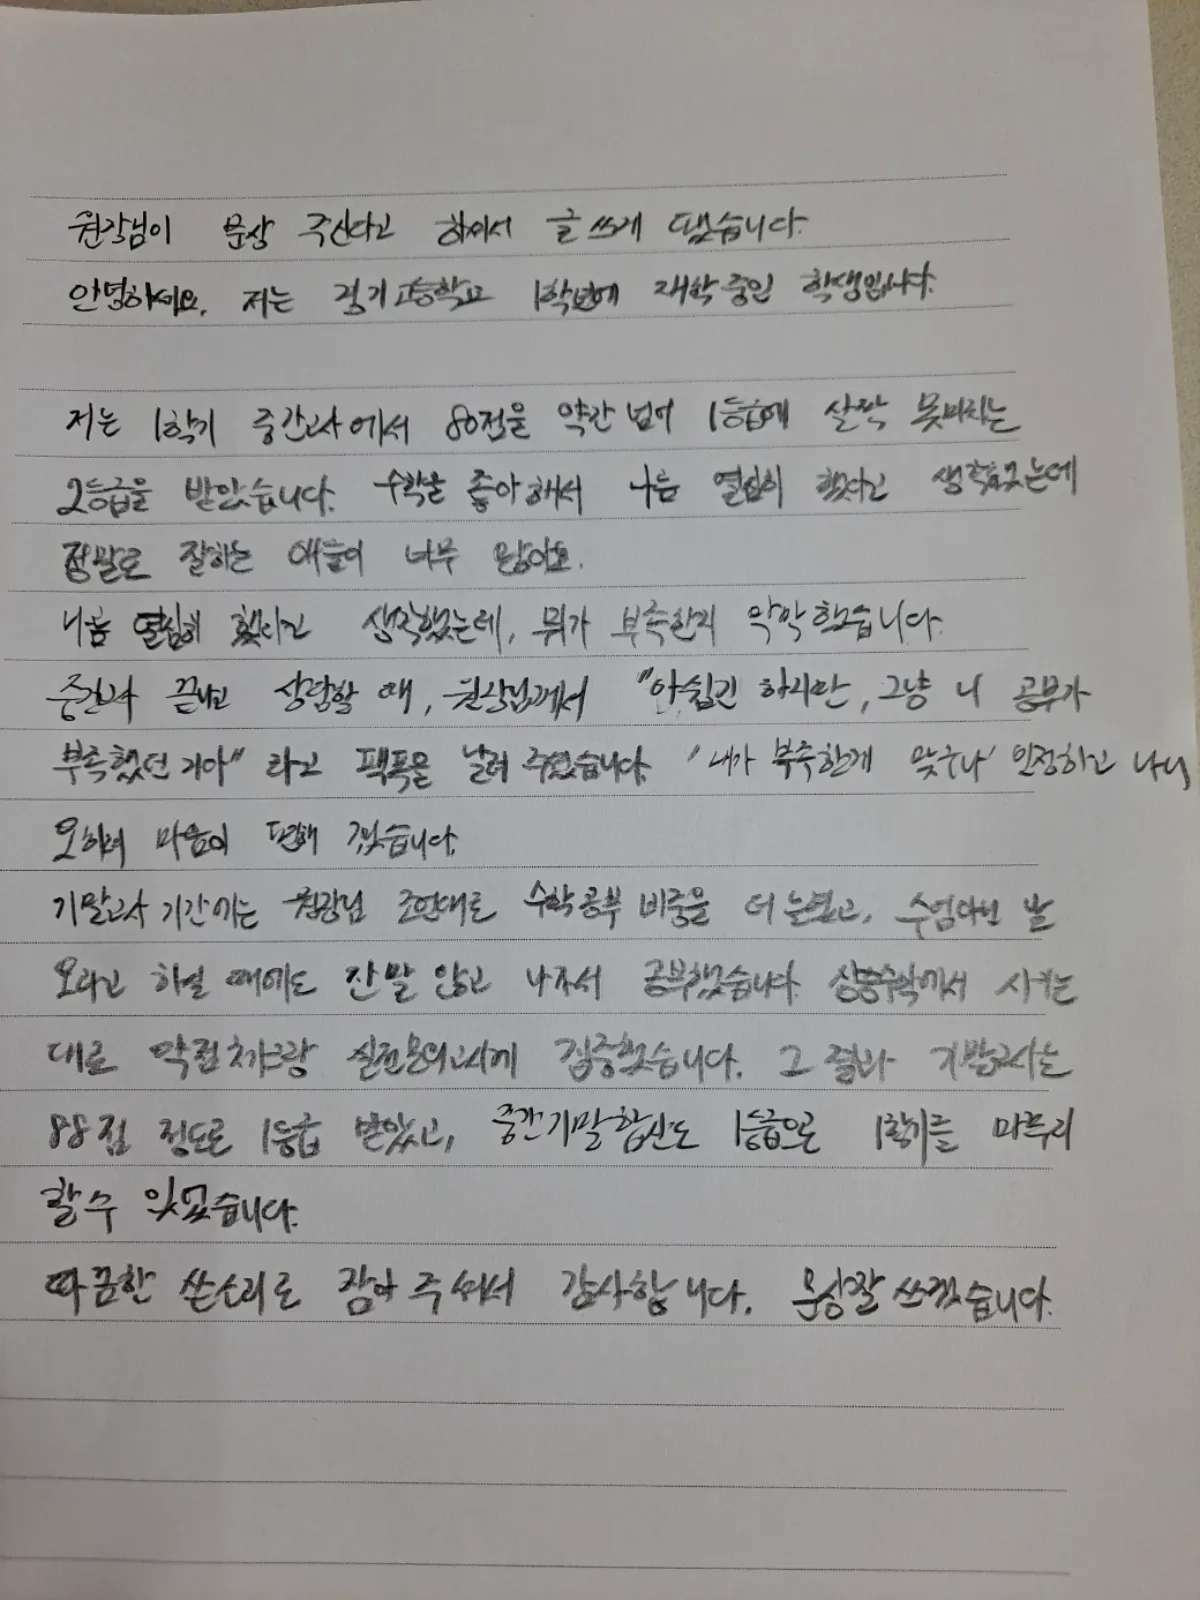 원장님이 문상 주신다고 하셔서 글 쓰게 됐습니다.
안녕하세요. 저는 경기고등학교 1학년에 재학중인 학생입니다.
저는 1학기 중간고사에서 80점을 약간 넘어 1등급에 살짝 못미치는
2등급을 받았습니다. 수학을 좋아해서 나름 열심히 했다고 생각했는데
정말로 잘하는 애들이 너무 많아요.
나름 열심히 했다고 생각했는데, 뭐가 부족한지 막막했습니다.
중간고사 끝나고 상담할 때, 원장님께서 "아쉽긴 하지만, 그냥 니 공부가
부족했던거야" 라고 팩폭을 날려 주셨습니다. '내가 부족한게 맞구나' 인정하고 나니
오히려 마음이 편해 졌습니다.
기말고사 기간에는 원장님 조언대로 수학공부 비중을 더 늘렸고, 수업아닌 날
오라고 하실 때에도 잔말 않고 나와서 공부했습니다. 상승수학에서 시키는
대로 약점체크랑 실전모의고사에 집중했습니다. 그 결과 기말고사는
88점 정도로 1등급 받았고, 중간기말합산도 1등급으로 1학기를 마무리
할 수 있었습니다.
따끔한 쓴소리로 잡아 주셔서 감사합니다. 문상 잘 쓰겠습니다.